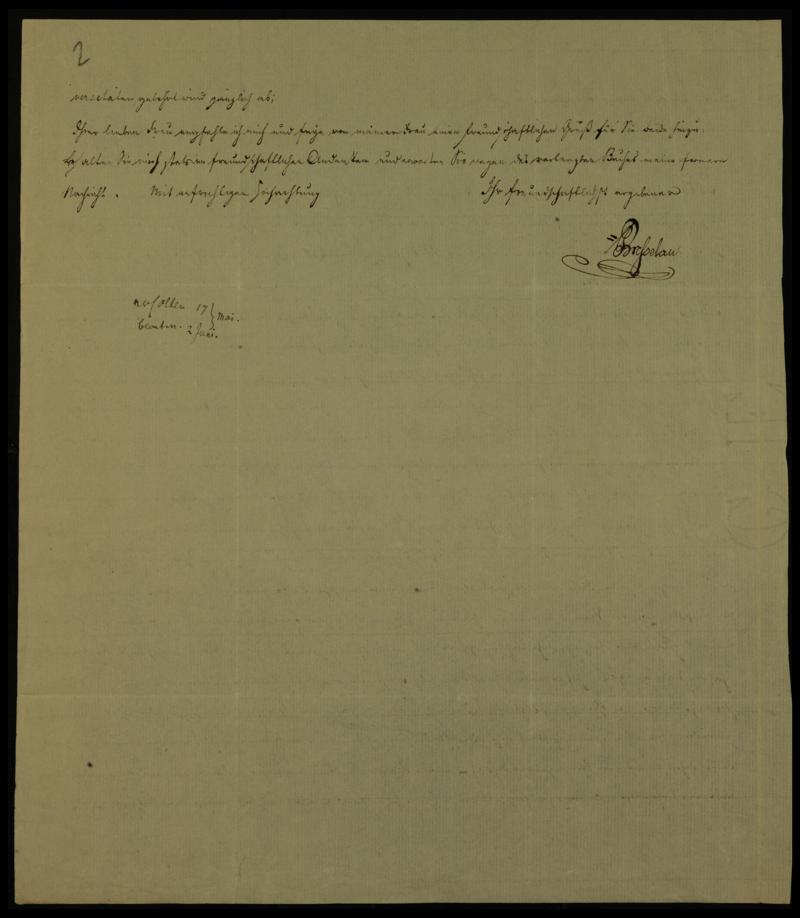 2
versitäten gelehrt wird gänzlich ab;
Ihrer lieben Frau empfehle ich mich und füge von meiner Frau einen freundschaftlichen Gruß für Sie beide hinzu.
Erhalten Sie mich stets im freundschaftlichen Andenken und erwarten Sie wegen des verlangten Buches meine fernere
Nachricht. Mit aufrichtiger Hochachtung Ihr freundschaftlichst ergebener
Bresselau
erhalten 17 Mai.
beantw. 2 Juni.